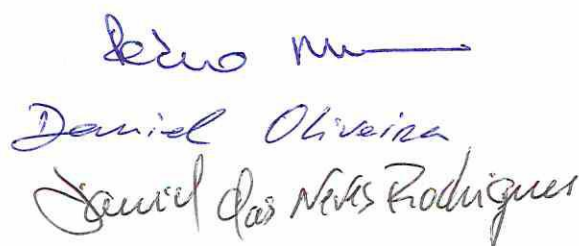 Pedro
Daniel Oliveira
Daniel das Neves Rodrigues